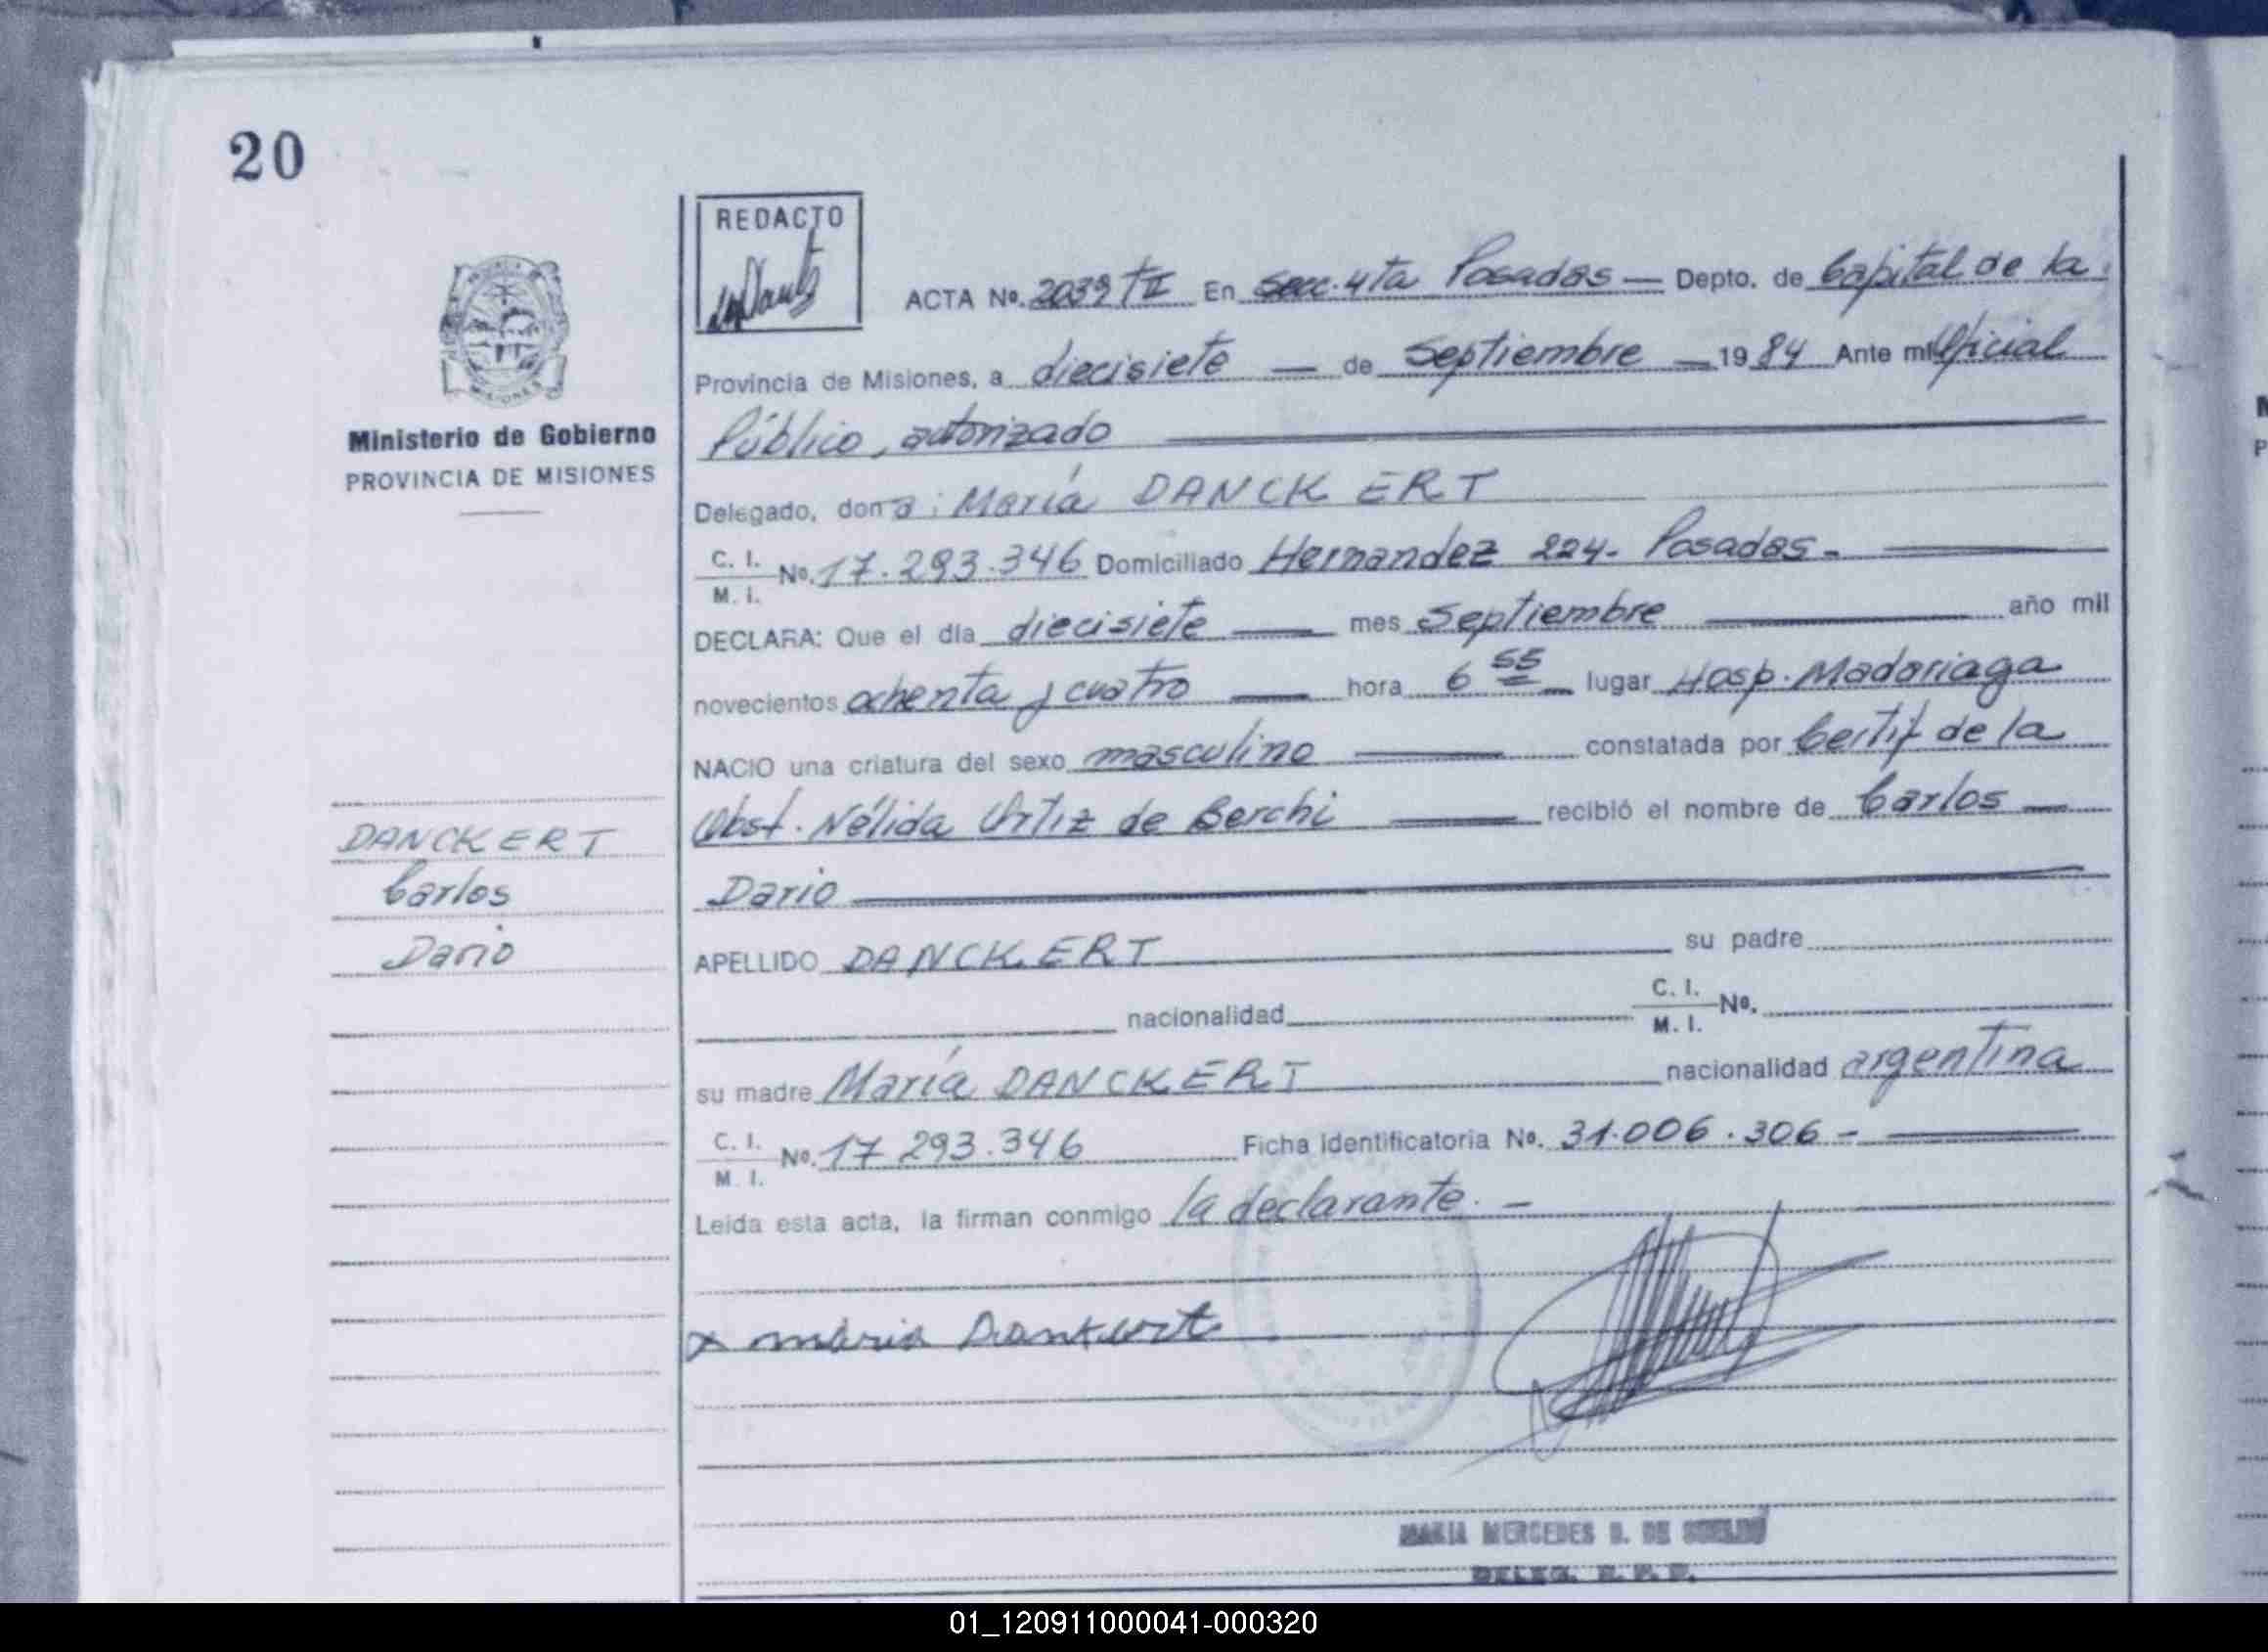 20
REDACTO
ACTA Nº. 2039 tII En Secc. 4ta Posadas — Depto. de Capital de la
Provincia de Misiones, a diecisiete — de Septiembre — 1984 Ante mi Oficial
Público, autorizado
Delegado, don a: María DANCKERT
C. I. / M. I. Nº. 17.293.346 Domiciliado Hernandez 224- Posadas-
DECLARA: Que el día diecisiete — mes Septiembre — año mil
novecientos ochenta y cuatro — hora 6 55 — lugar Hosp. Madariaga
NACIO una criatura del sexo masculino — constatada por Certif de la
Obst. Nélida Ortiz de Berchi — recibió el nombre de Carlos —
Dario —
APELLIDO DANCKERT su padre
nacionalidad C. I. / M. I. Nº.
su madre María DANCKERT nacionalidad argentina
C. I. / M. I. Nº. 17 293.346 Ficha identificatoria Nº. 31.006.306 - —
Leída esta acta, la firman conmigo la declarante. -
x maria Dankert
MARIA MERCEDES
MISIONES
Ministerio de Gobierno
PROVINCIA DE MISIONES
DANCKERT
Carlos
Dario
01_120911000041-000320